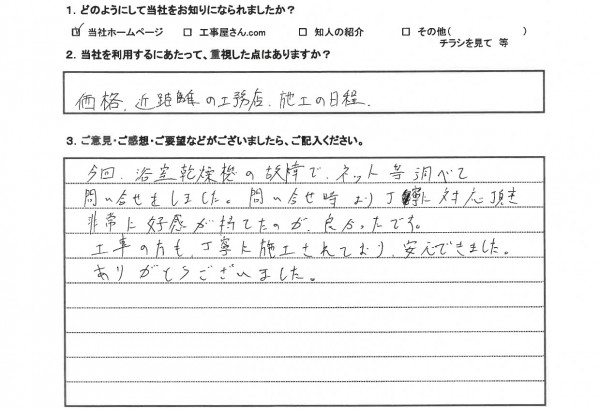 1. どのようにして当社をお知りになられましたか？
☑ 当社ホームページ □ 工事屋さん.com □ 知人の紹介 □ その他( )
チラシを見て 等
2. 当社を利用するにあたって、重視した点はありますか？
価格、近距離の工務店、施工の日程、
3. ご意見・ご感想・ご要望などがございましたら、ご記入ください。
今回、浴室乾燥機の故障で、ネット等調べて
問い合せをしました。問い合せ時より丁寧に対応頂き
非常に好感が持てたのが、良かったです。
工事の方も、丁寧に施工されており、安心できました。
ありがとうございました。